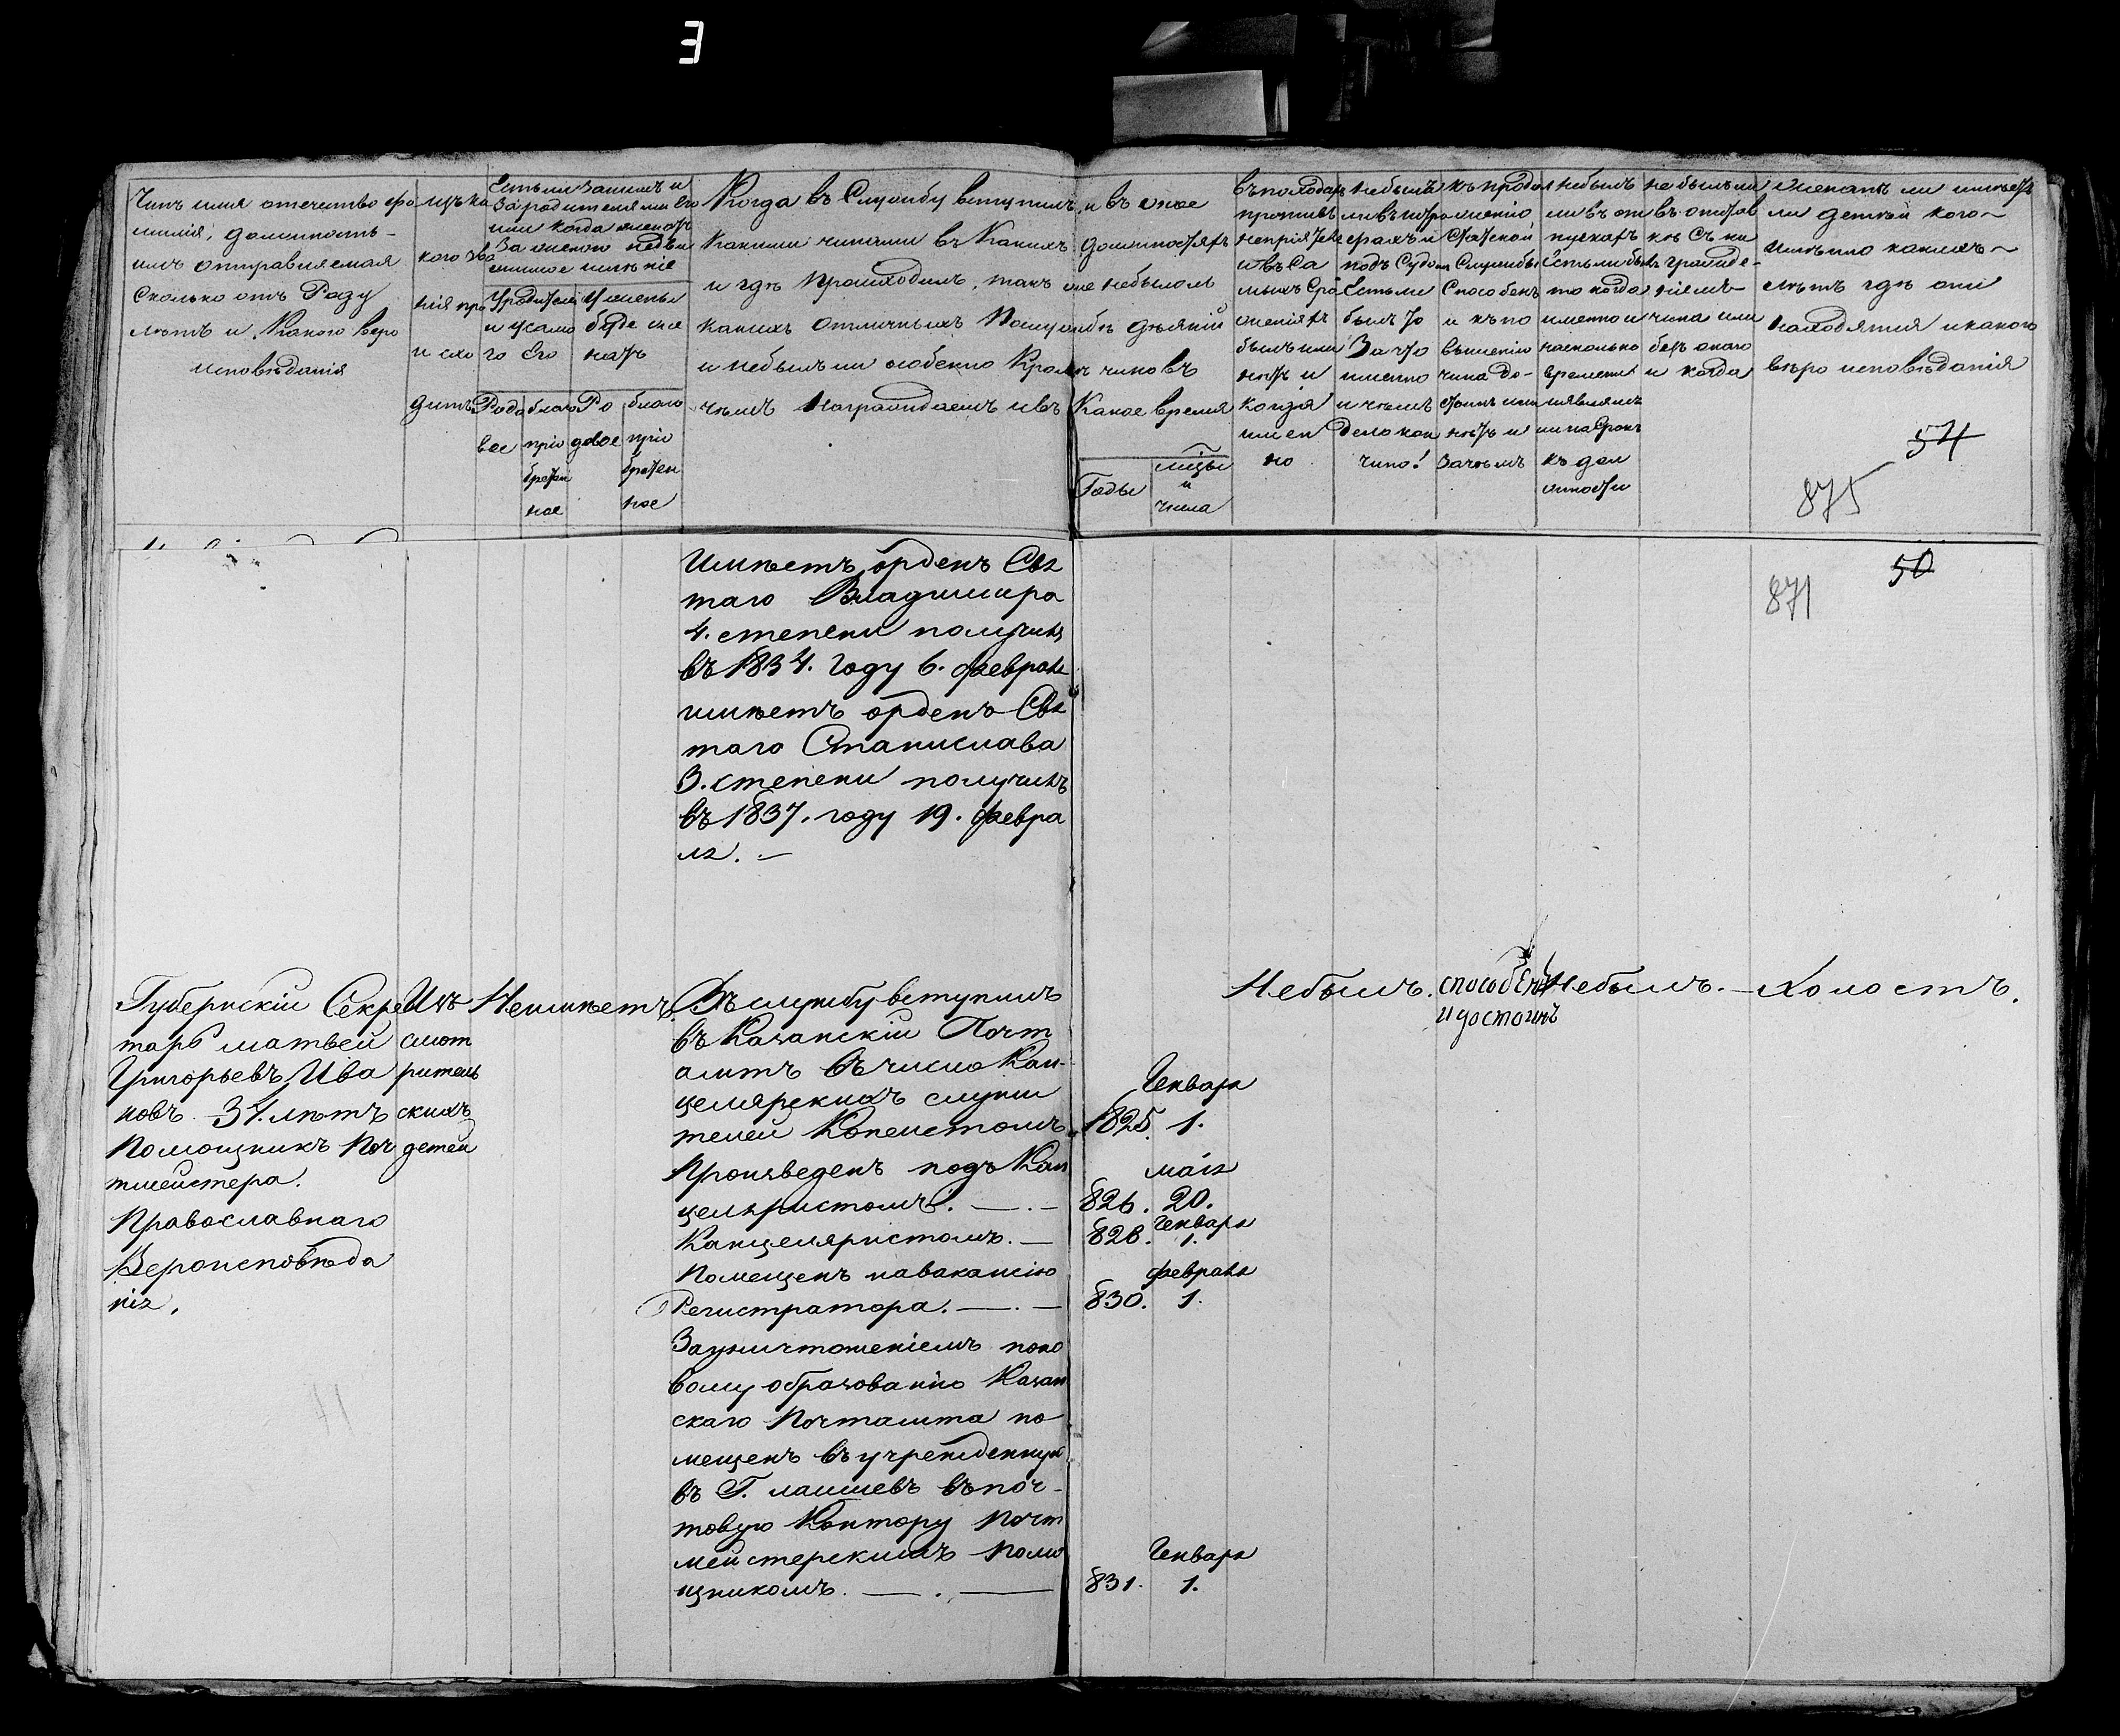 Е
Чинъ имя отечество фа
милія, должность
имъ отправляемая
сколько отъ Роду
лѣтъ и Какого веро
исповѣданія
изъ ка
кого зва
нія про
и схо
дитъ
Есть ли за нимъ и
за родителями его
или когда женатъ
за женою недви
жимое имѣніе
У родителей
и у само
го Его
У жены
буде же
натъ
Родо
вое
благо
прiо
бретен
ное
Ро
довое
благо
прiо
бретен
ное
Когда въ Службу вступилъ, и въ оное
Какими чинами въ Какихъ Должностяхъ
и гдѣ Происходилъ, такъ же небылоль
какихъ отличныхъ По службѣ дѣяній
и небылъ ли особенно Кромѣ чиновъ
чѣмъ Награждаемъ и въ Какое время
Годы
мѣцы
и
числа
въ походахъ
противъ
непріяте
и въ Са
мыхъ Сра
женіяхъ
былъ или
нѣтъ и
когда
имен
но
небылъ
ли въ штра
фахъ и
подъ Судом
Естьли
былъ то
За что
именно
и чѣмъ
дело кон
чино!
къ продол
жению
Статской
Службы
Способенъ
и къ по
вышению
чина до-
стоинъ или
нѣтъ и
зачѣмъ
небылъ
ли въ от
пускахъ
Естьли былъ
то когда
именно и
насколько
времени
и явился
ли на Срокъ
къ дол
жности
не былъ ли
въ отстав
кѣ съ на
гражде-
ніемъ
чина или
безъ онаго
и когда
Женатъ ли имѣетъ
ли детей кого
имѣнно какихъ
лѣтъ гдѣ они
находятся и какого
вѣро исповѣданія
54
875
50
871
Имѣетъ орденъ Свя
таго Владимира
4. степени получилъ
въ 1834. году 6. февраля
имѣетъ орденъ Свя
таго Станислава
3. степени получилъ
въ 1837. году 19. февра
ля.
Губернскій Секре
тарь матвей
Григорьевъ Ива
новъ 31. лѣтъ
Помощникъ Поч
тмейстера.
Православнаго
Вероисповѣда
нія.
Изъ
смот
ритель
скихъ
детей
Неимѣетъ.
Въ службу вступилъ
въ Казанскій Почт
амтъ въ число Кан-
целярскихъ служи
телей Копеистомъ
Произведенъ подъ Кан
целяристомъ.
Канцеляристомъ.
Помещенъ навакансію
Регистратора.
За уничтоженіемъ поно
вому образованію Казан
скаго Почтамта по
мещенъ въ учрежденную
въ Г. лаишевъ въ поч-
товую Контору Почт
мейстерскимъ помо
щникомъ.
Генваря
1825. 1.
маія
826. 20.
Генваря
828. 1.
февраля
830. 1.
Генваря
831. 1.
Небылъ.
способенъ
и достоинъ
Небылъ.
Холостъ.